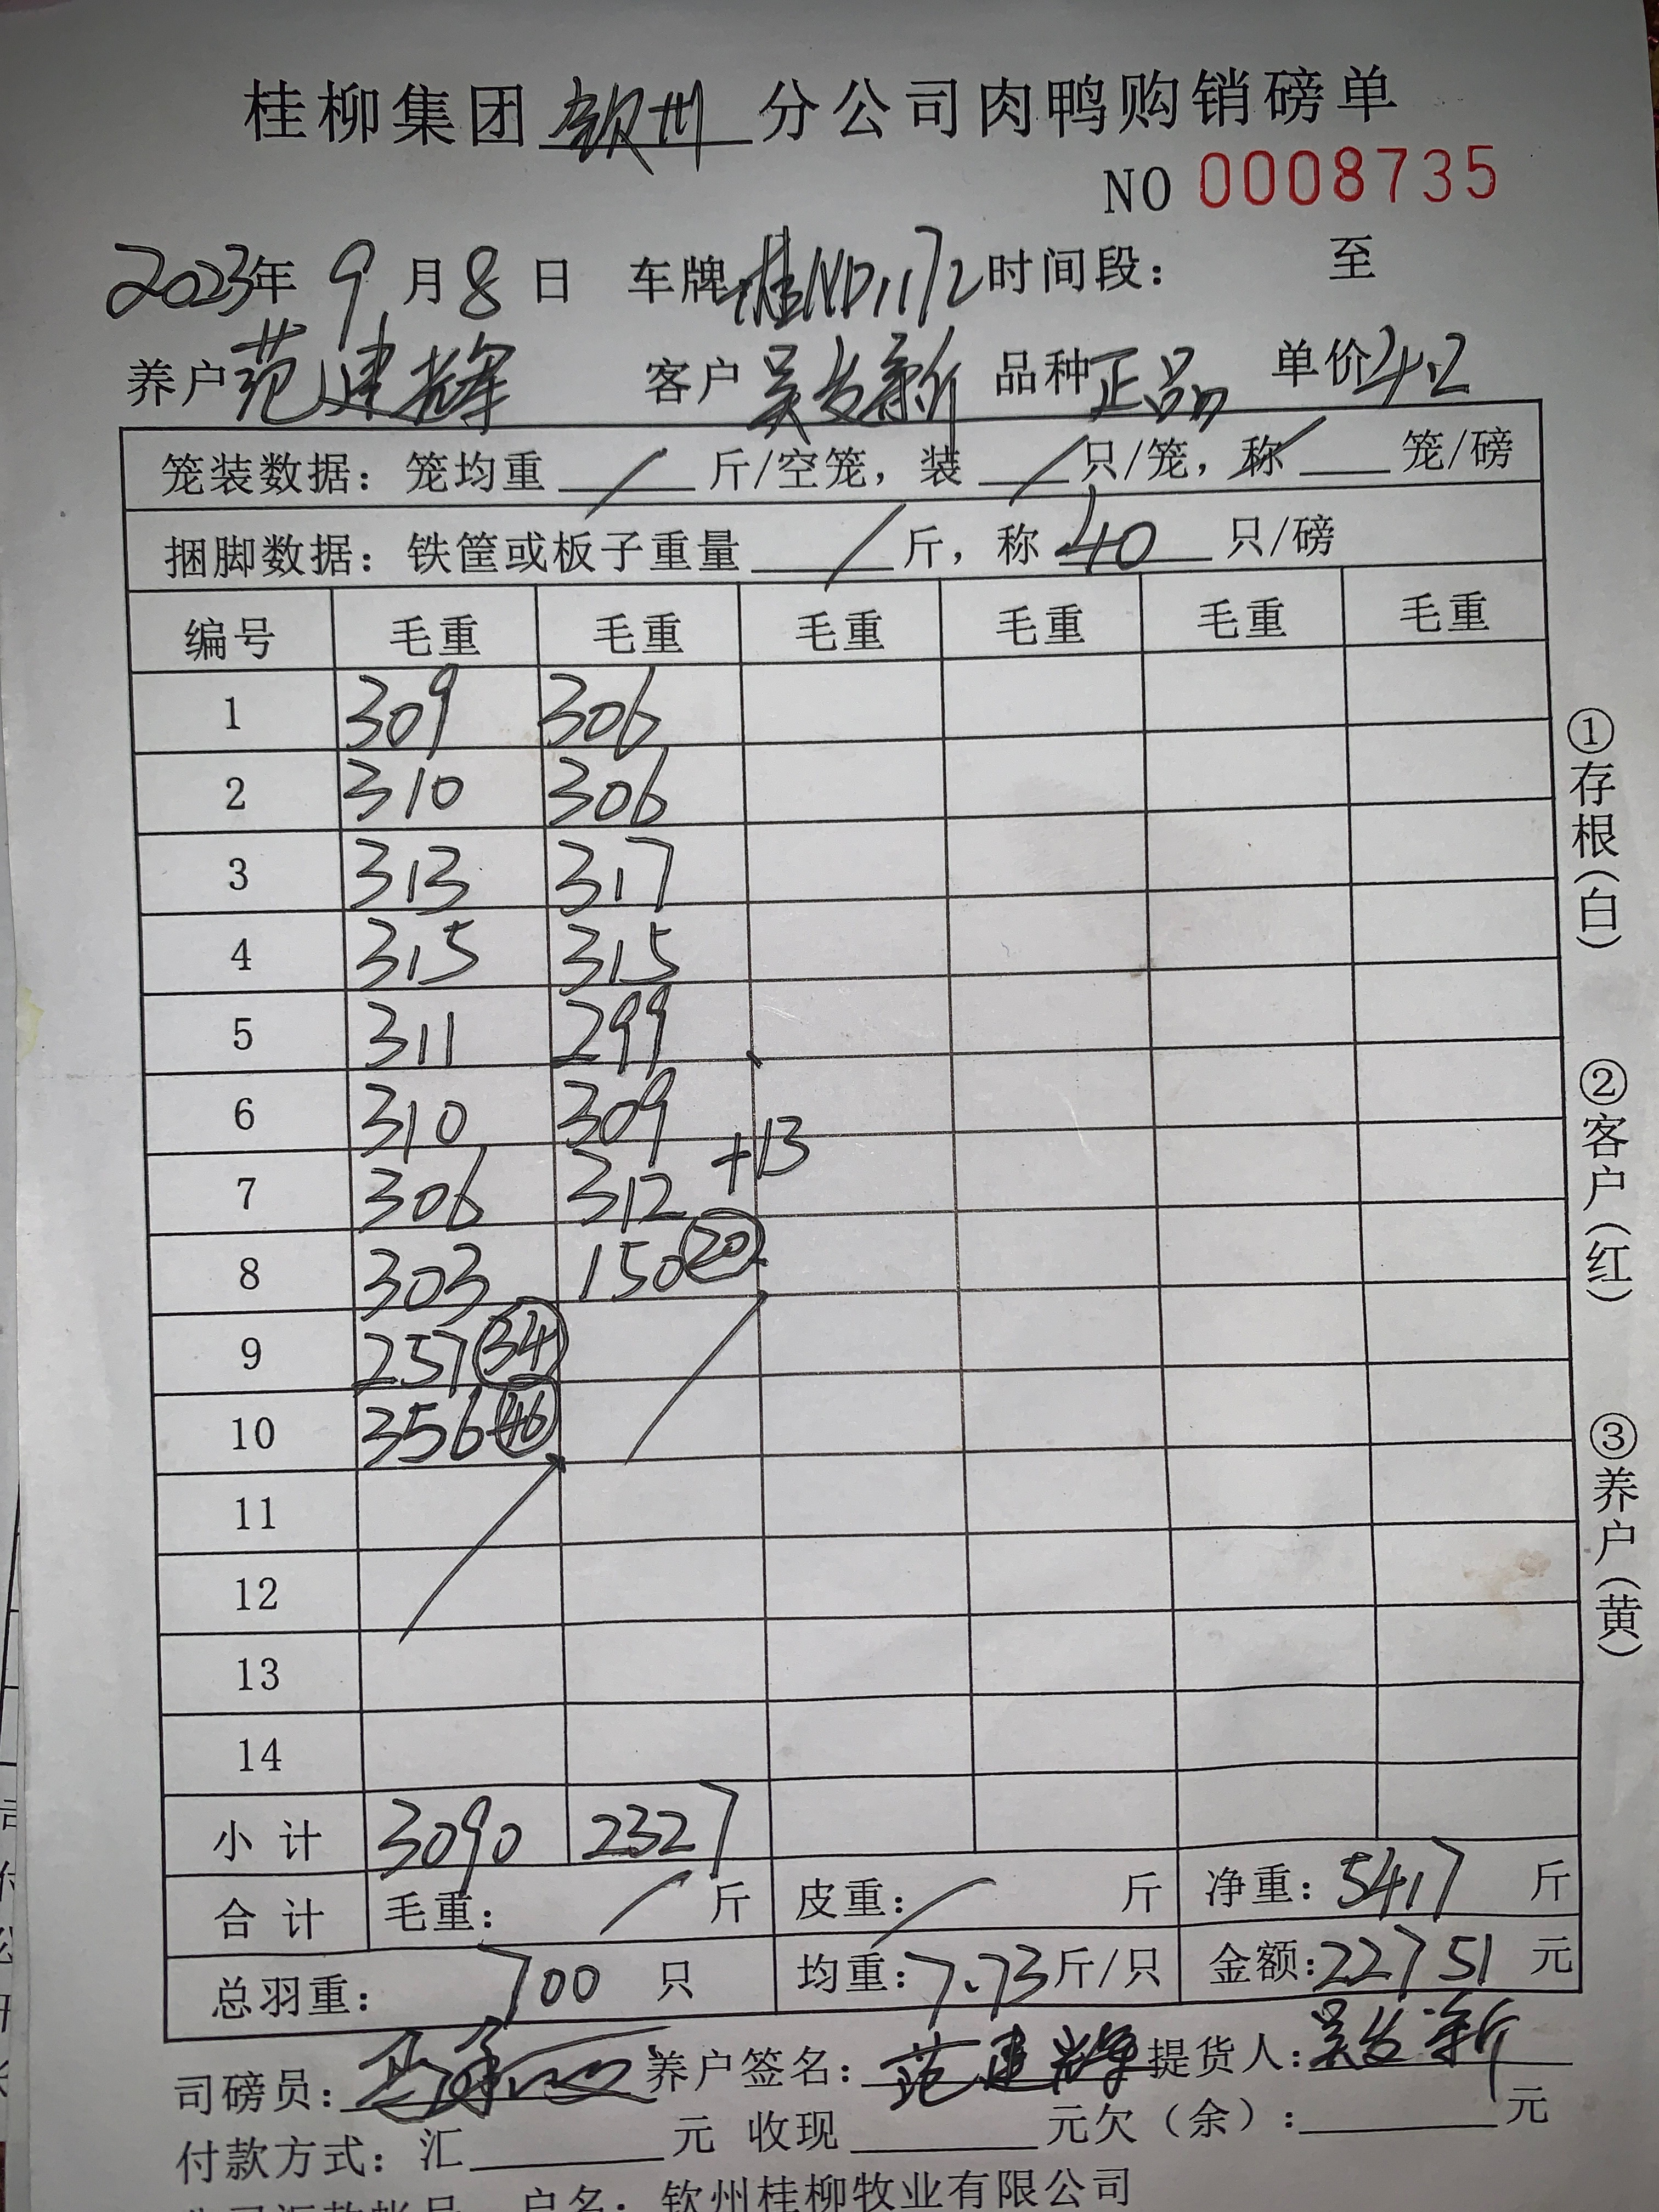 桂柳集团 钦州 分公司肉鸭购销磅单
NO 0008735
2023年 9 月 8 日 车牌 桂ND1172 时间段： 至
养户 范建辉 客户 吴发新 品种 正品 单价 4.2
笼装数据：笼均重 / 斤/空笼，装 / 只/笼，称 / 笼/磅
捆脚数据：铁筐或板子重量 / 斤，称 40 只/磅
编号 毛重 毛重 毛重 毛重 毛重 毛重
1 309 306
2 310 306
3 313 317
4 315 315
5 311 299
6 310 309
7 306 312 +13
8 303 150 20
9 257 34
10 356 46
11
12
13
14
小计 3090 2327
合计 毛重： / 斤 皮重： / 斤 净重：5417 斤
总羽重： 700 只 均重：7.73斤/只 金额：22751 元
司磅员： 养户签名：范建辉 提货人：吴发新
付款方式：汇 元 收现 元欠（余）： 元
户名：钦州桂柳牧业有限公司
①存根（白）
②客户（红）
③养户（黄）